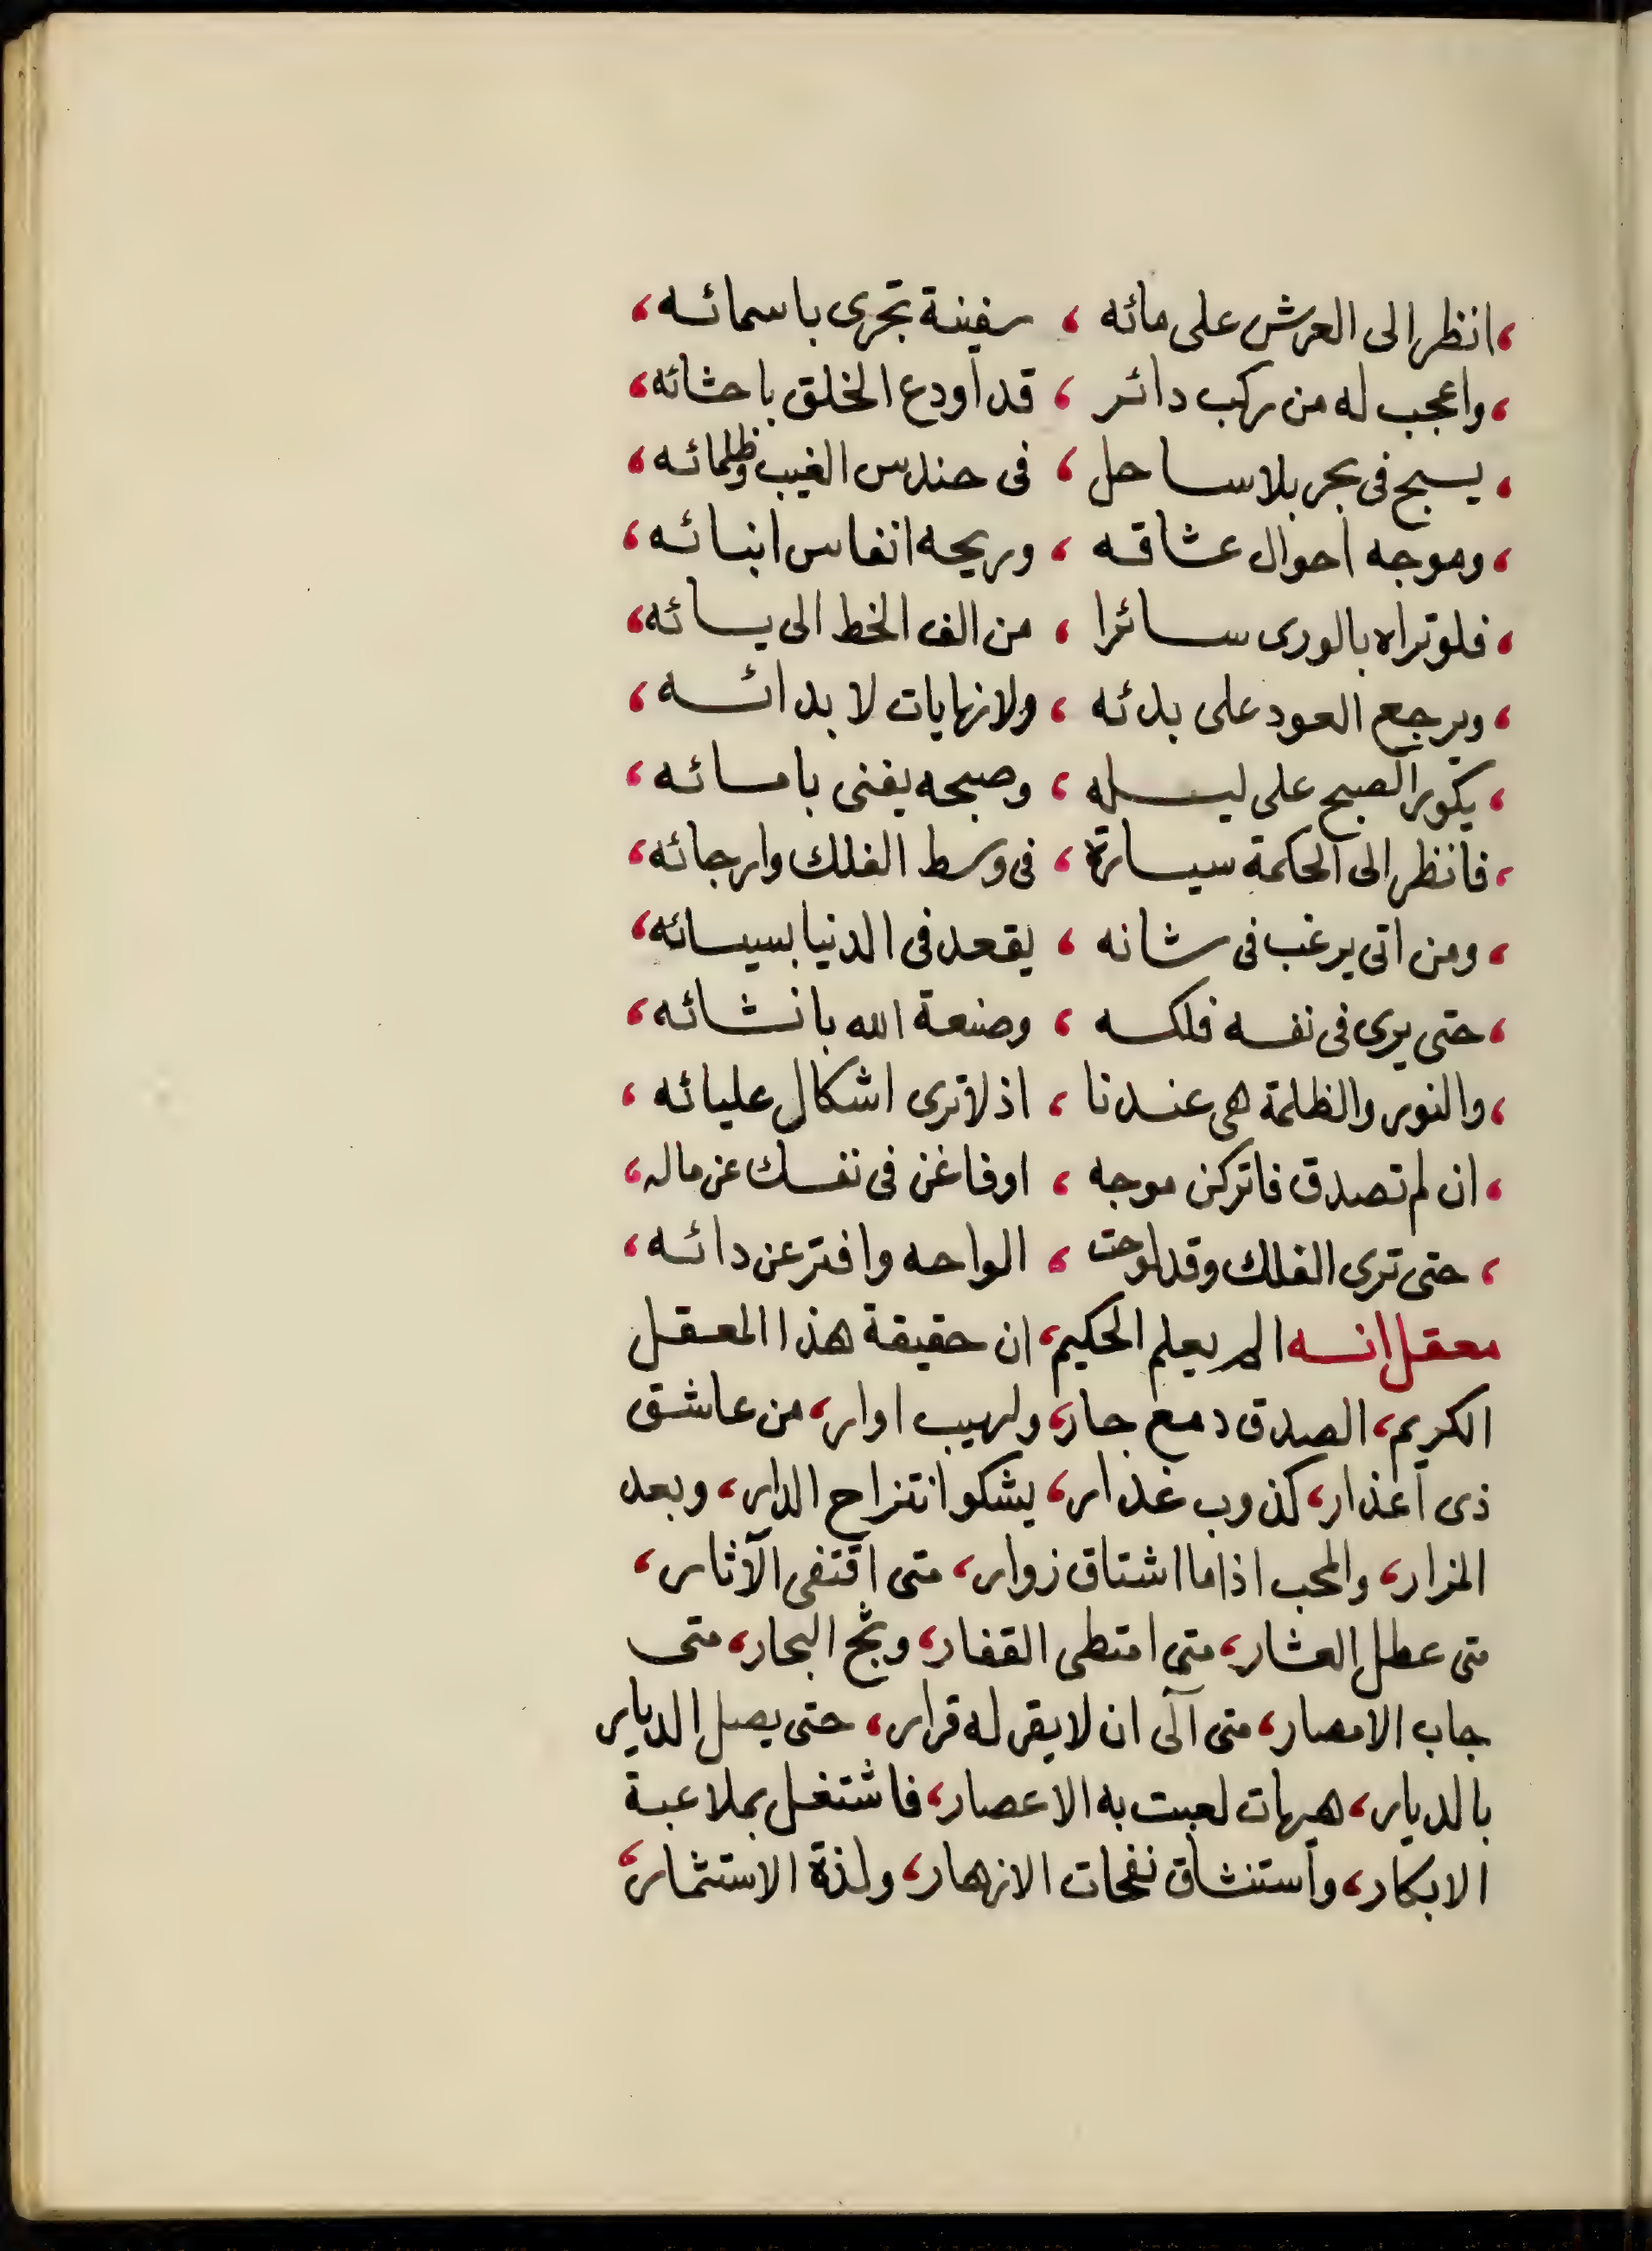 ، انظر الى العرش على مائه ، سفينة تجرى باسمائه ،
، واعجب له من مركب دائر ، قد اودع الخلق باحشائه ،
، يسبح فى بحر بلا ساحل ، فى حندس الغيب وظلمائه ،
، وموجه احوال عشاقه ، وريحه انفاس انبائه ،
، فلو تراه بالورى سائرا ، من الف الخط الى يائه ،
، ويرجع العود على بدئه ، ولا نهايات لابدائه ،
، يكور الصبح على ليله ، وصبحه يفنى بامسائه ،
، فانظر الى الحكمة سيارة ، فى وسط الفلك وارجائه ،
، ومن اتى يرغب فى شانه ، يقعد فى الدنيا بسيسائه ،
، حتى يرى فى نفسه فلكه ، وصنعة الله بانشائه ،
، والنور والظلمة هى عندنا ، اذ لا ترى اشكال عليائه ،
، ان لم تصدق فاتركن موجه ، اوفاغن فى نفسك عن ماله ،
، حتى ترى الفلك وقد لوحت ، الواحه وافتر عن دائه ،
معقل انسه الم يعلم الحكيم، ان حقيقة هذا المعقل
الكريم، الصدق دمع جار، ولهيب اوار، من عاشق
ذى اعذار، كذوب غدار، يشكو انتزاح الدار، وبعد
المزار، والمحب اذا ما اشتاق زوار، متى اقتفى الآثار،
متى عطل العشار، متى امتطى القفار، وثج البحار، متى
جاب الامصار، متى آلى ان لا يقر له قرار، حتى يصل الديار
بالديار، هيهات لعبت به الاعصار، فاشتغل بملاعبة
الابكار، واستنشاق نفحات الازهار، ولذة الاستثمار،